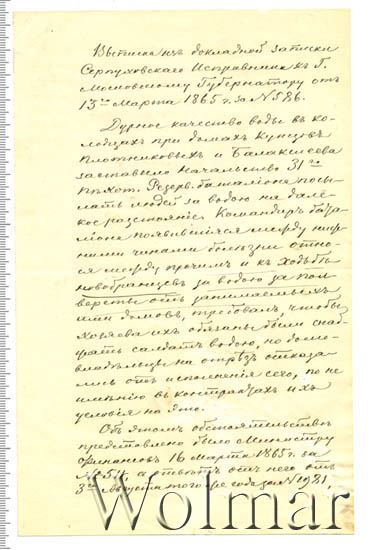 Выписка изъ докладной записки
Серпуховскаго Исправника къ Г.
Московскому Губернатору отъ
13го Марта 1865 г. за № 586.
Дурное качество воды въ ко-
лодцахъ при домахъ Купцовъ
Плотниковыхъ и Балаксеева
заставило Начальство 31го
Пѣхот. Резерв. баталіона посы-
лать людей за водою на дале-
кое разстояніе. Командиръ бата-
ліона появившіяся между ниж-
ними чинами болезни относ-
ся между прочимъ и къ ходьбѣ
новобранцевъ за водою за пол-
версты отъ занимаемыхъ
ими домовъ, требовалъ, чтобы
хозяева ихъ обязаны были снаб-
жать солдатъ водою, но домо-
владѣльцы на отрѣзъ отказа-
лись отъ исполненія сего, по не
имѣнію въ контрактахъ ихъ
условія на это.
Объ этомъ обстоятельствѣ
представлено было Министру
Финансовъ 16 Марта 1865 г. за
а отвѣтъ отъ него отъ
3го Августа того же года за № 1981,
Wolmar